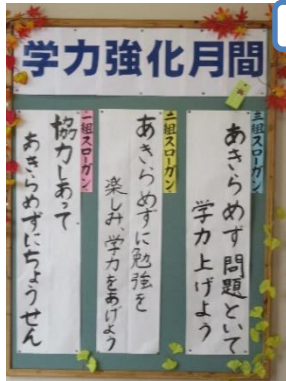 学力強化月間
三組スローガン
あきらめず問題といて
学力上げよう
二組スローガン
あきらめずに勉強を
楽しみ、学力をあげよう
一組スローガン
協力しあって
あきらめずにちょうせん